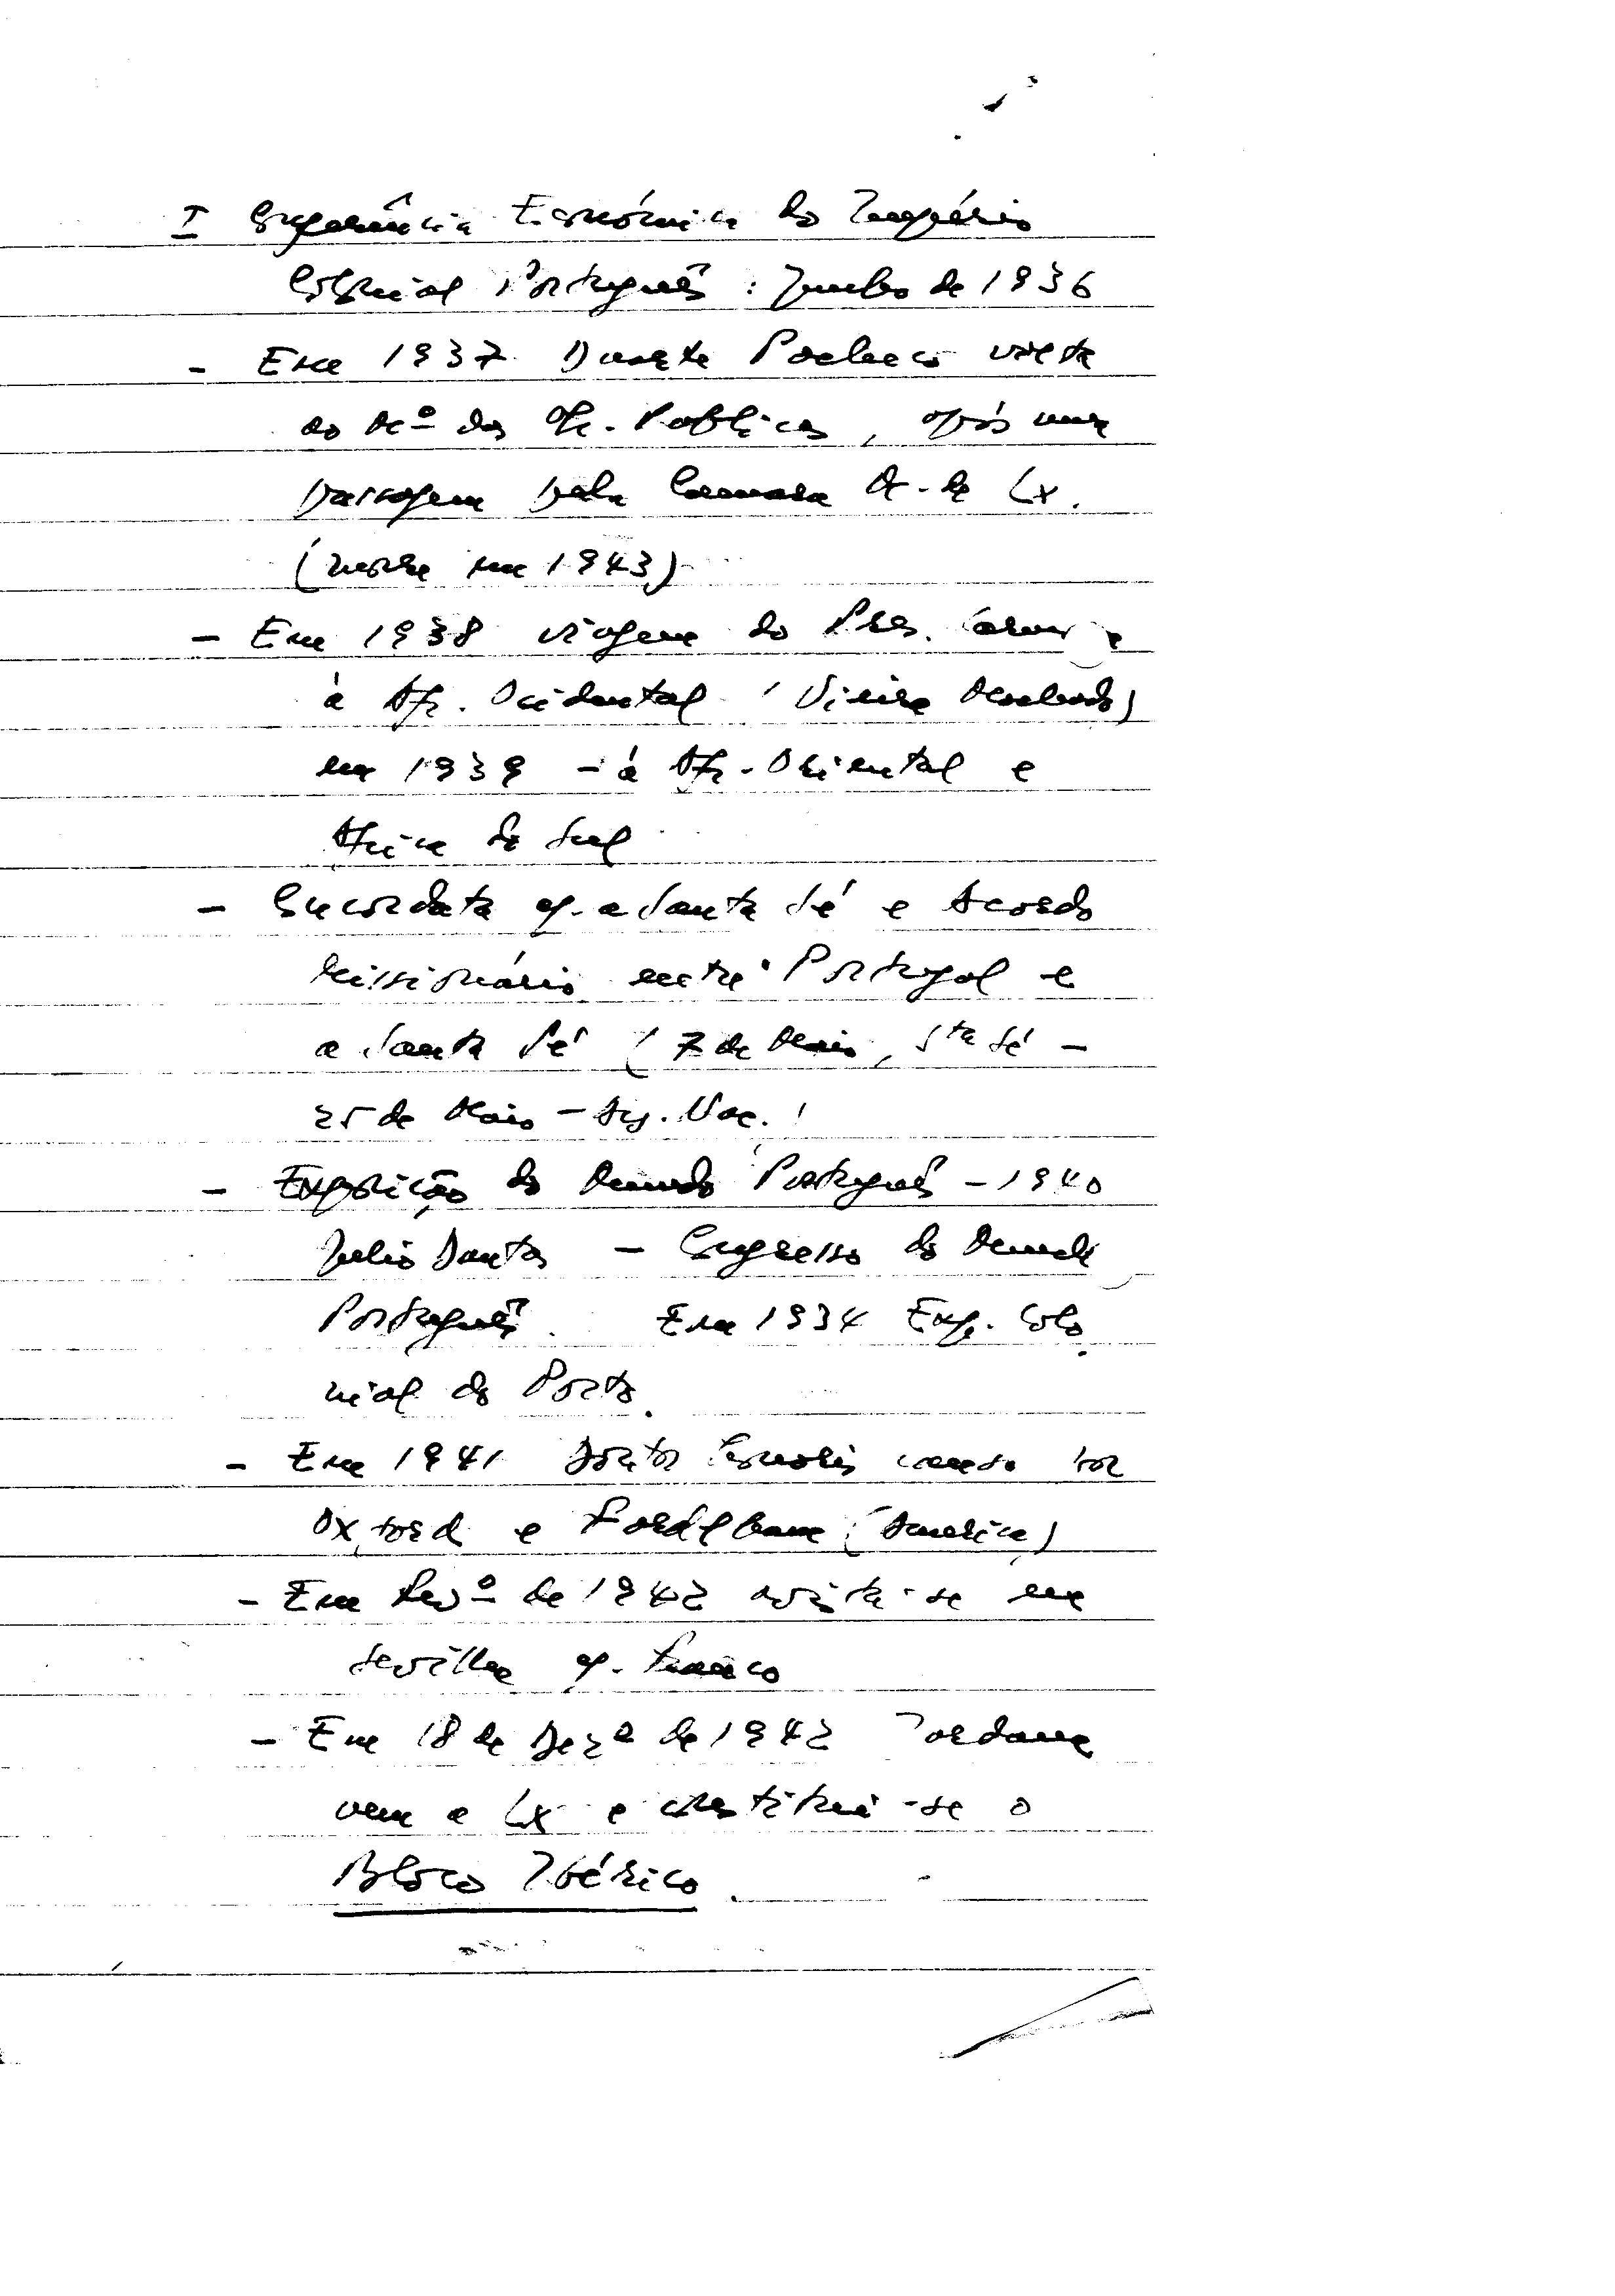 I Conferência Económica do Império
Colonial Português : Junho de 1936
- Em 1937 Duarte Pacheco volta
ao Mº das Ob. Públicas, após uma
passagem pela Camara M. de Lx.
(morre em 1943)
- Em 1938 viagem do Pres. Carmona
à Afr. Ocidental (Vieira Machado)
em 1939 - à Afr. Oriental e
Africa do Sul
- Concordata c/ a Santa Sé e Acordo
Missionário entre Portugal e
a Santa Sé (7 de Maio, Sta Sé -
25 de Maio - Ass. Nac.)
- Exposição do Mundo Português - 1940
Julio Dantas - Congresso do Mundo
Português. Em 1934 Exp. Colo
nial do Porto.
- Em 1941 Doutor honoris causa por
Oxford e Fordham (America)
- Em Fevº de 1942 avista-se em
Sevilha c/ Franco
- Em 18 de Dezº de 1942 Jordana
vem a Lx e constitui-se o
Bloco Ibérico.